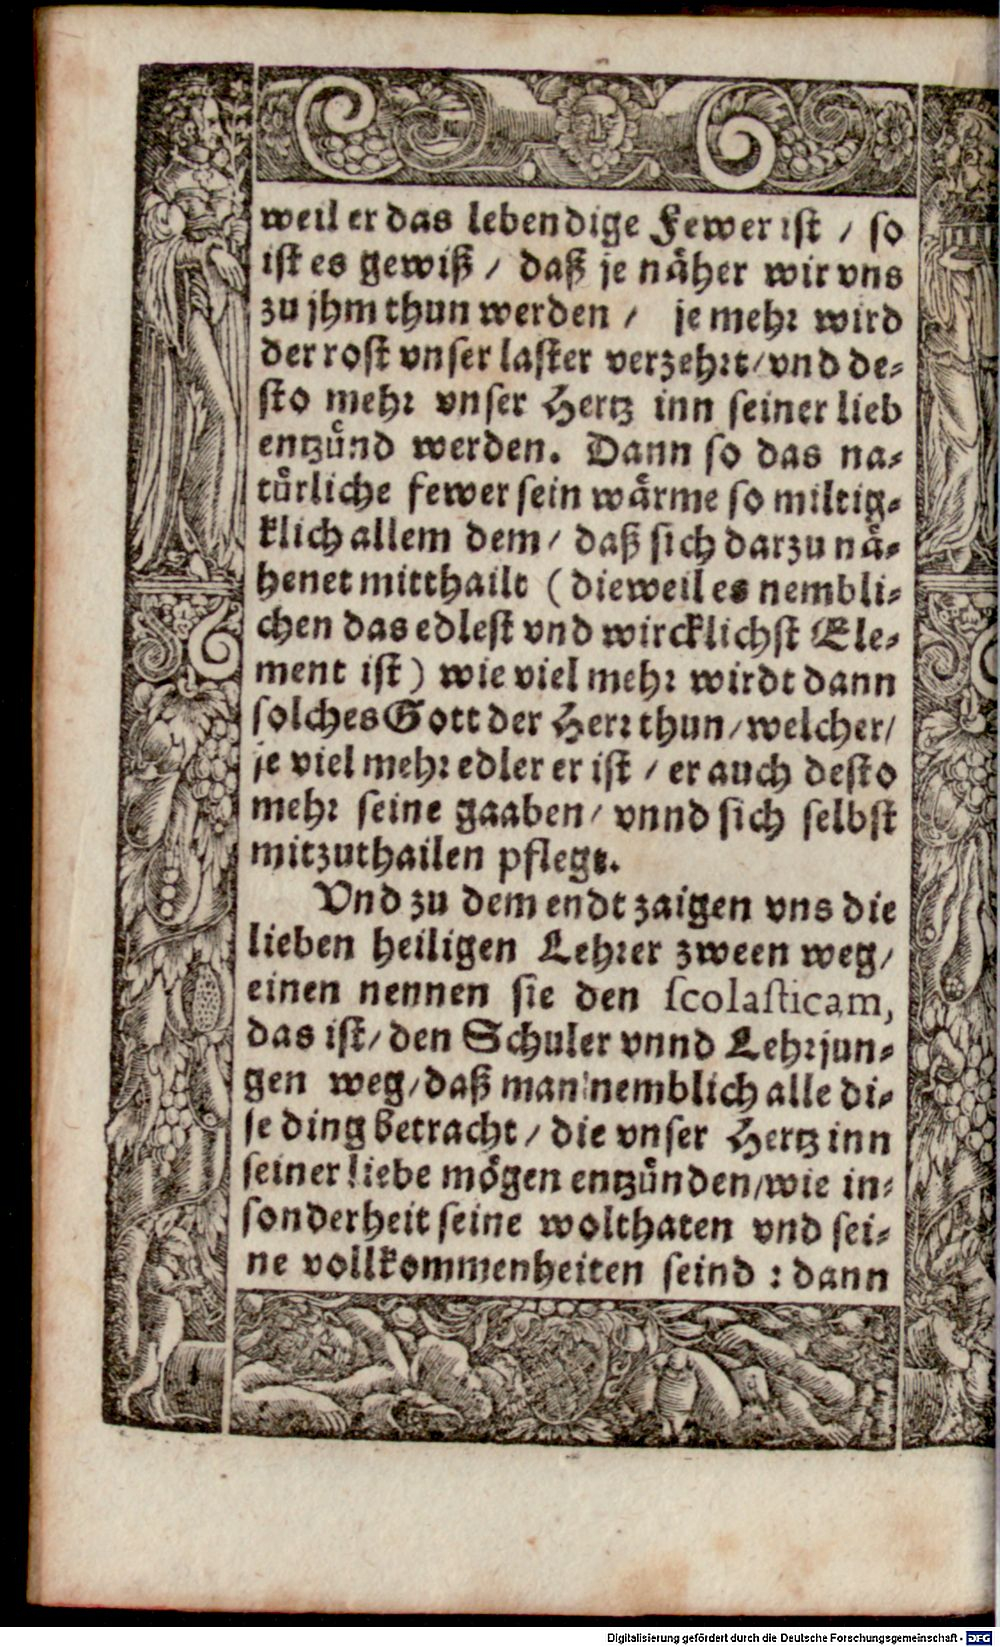 weil er das lebendige Fewer ist / so
ist es gewiß / daß je näher wir vns
zu jhm thun werden / je mehr wird
der rost vnser laster verzehrt / vnd de-
sto mehr vnser Hertz inn seiner lieb
entzünd werden. Dann so das na-
türliche fewer sein wärme so miltig-
klich allem dem / daß sich darzu nä-
henet mitthailt (dieweil es nembli-
chen das edlest vnd wircklichst Ele-
ment ist) wie viel mehr wirdt dann
solches Gott der Herr thun / welcher /
je viel mehr edler er ist / er auch desto
mehr seine gaaben / vnnd sich selbst
mitzuthailen pflegt.
Vnd zu dem endt zaigen vns die
lieben heiligen Lehrer zween weg /
einen nennen sie den scolasticam,
das ist / den Schuler vnnd Lehrjun-
gen weg / daß man nemblich alle di-
se ding betracht / die vnser Hertz inn
seiner liebe mögen entzünden / wie in-
sonderheit seine wolthaten vnd sei-
ne vollkommenheiten seind : dann
Digitalisierung gefördert durch die Deutsche Forschungsgemeinschaft - DFG